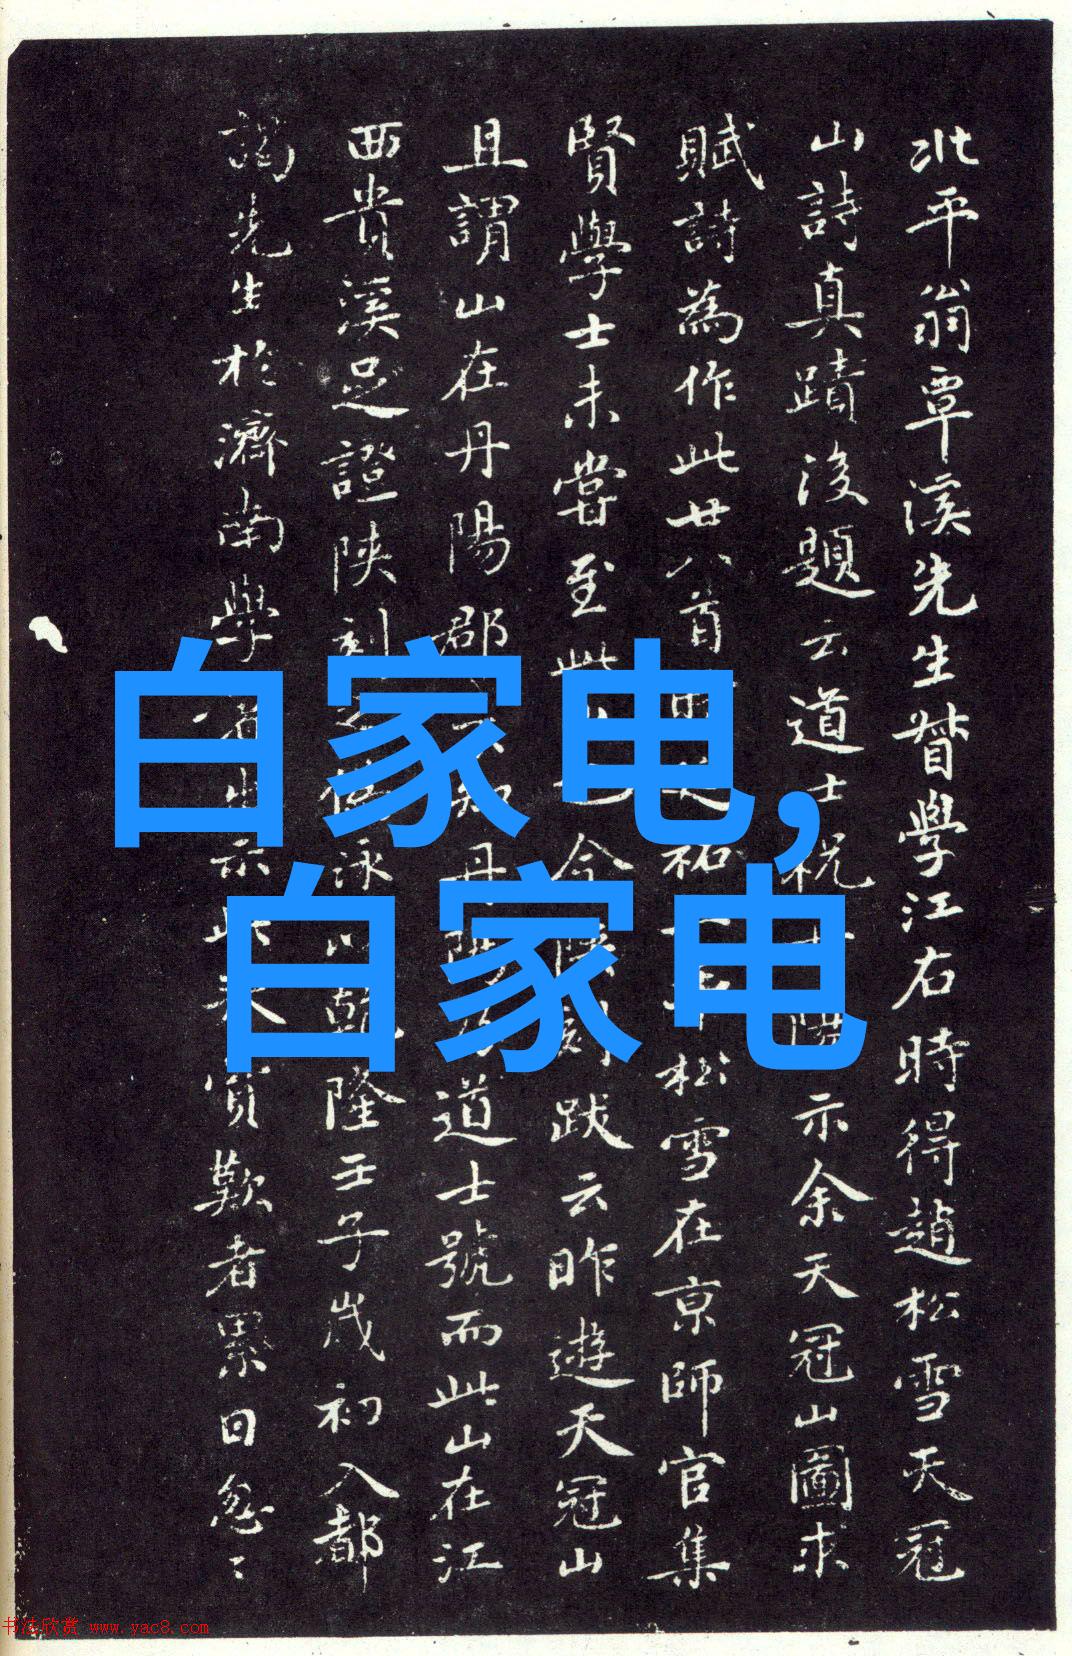 北平翁覃溪先生督學江右時得趙松雪天冠
山詩真蹟後題云道士祝 陽示余天冠山圖求
賦詩為作此廿八首 祐 松雪在京師官集
賢學士未嘗至此 今陝刻跋云昨遊天冠山
且謂山在丹陽郡 知丹陽 道士號而此山在江
西貴溪足證陝刻 偽 泳以乾隆壬子歲初入都
謁先生於濟南學 出示此 賞歎者累日忽〻
白家电,
白家电
书法欣赏 www.yac8.com